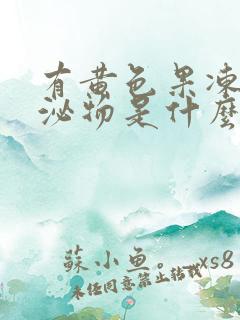 有黄色果冻
泌物是什么
蘇小鱼。_xs8
未经同意禁止转载